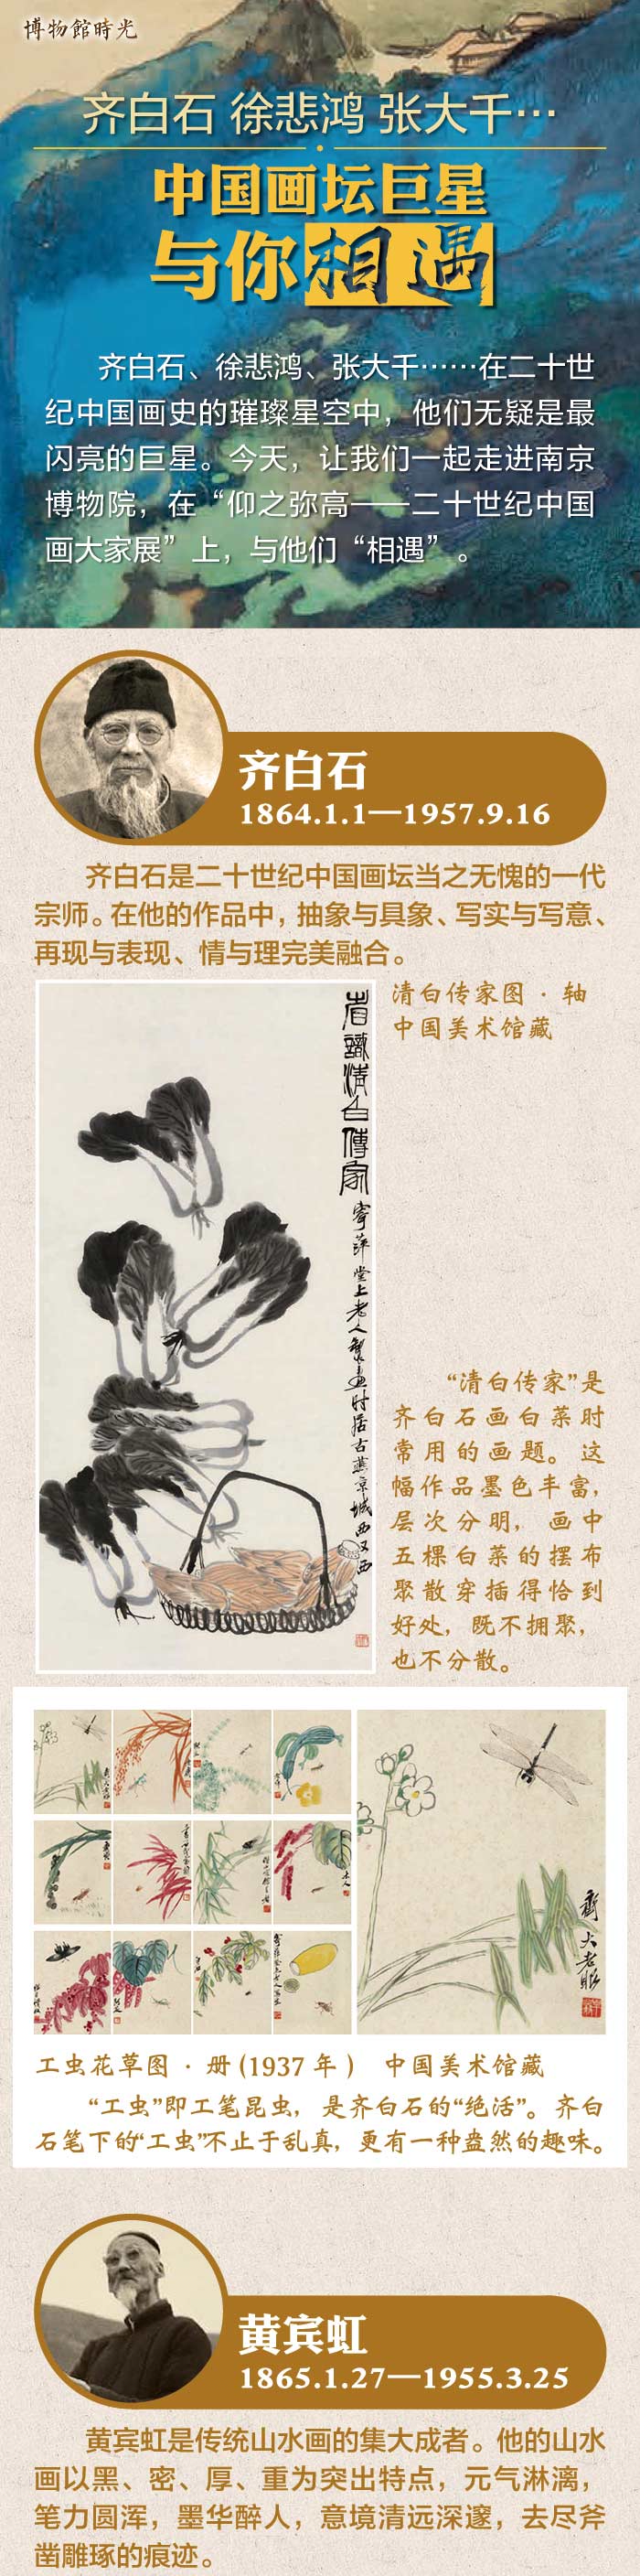 博物館時光
齐白石 徐悲鸿 张大千…
中国画坛巨星
与你相遇
齐白石、徐悲鸿、张大千……在二十世
纪中国画史的璀璨星空中，他们无疑是最
闪亮的巨星。今天，让我们一起走进南京
博物院，在“仰之弥高——二十世纪中国
画大家展”上，与他们“相遇”。
齐白石
1864.1.1—1957.9.16
齐白石是二十世纪中国画坛当之无愧的一代
宗师。在他的作品中，抽象与具象、写实与写意、
再现与表现、情与理完美融合。
清白传家图 · 轴
中国美术馆藏
省識清白傳家
寄萍堂上老人製畫时居古燕京城西又西
“清白传家”是
齐白石画白菜时
常用的画题。这
幅作品墨色丰富，
层次分明，画中
五棵白菜的摆布
聚散穿插得恰到
好处，既不拥聚，
也不分散。
工虫花草图 · 册 (1937 年) 中国美术馆藏
“工虫”即工笔昆虫，是齐白石的“绝活”。齐白
石笔下的“工虫”不止于乱真，更有一种盎然的趣味。
黄宾虹
1865.1.27—1955.3.25
黄宾虹是传统山水画的集大成者。他的山水
画以黑、密、厚、重为突出特点，元气淋漓，
笔力圆浑，墨华醉人，意境清远深邃，去尽斧
凿雕琢的痕迹。